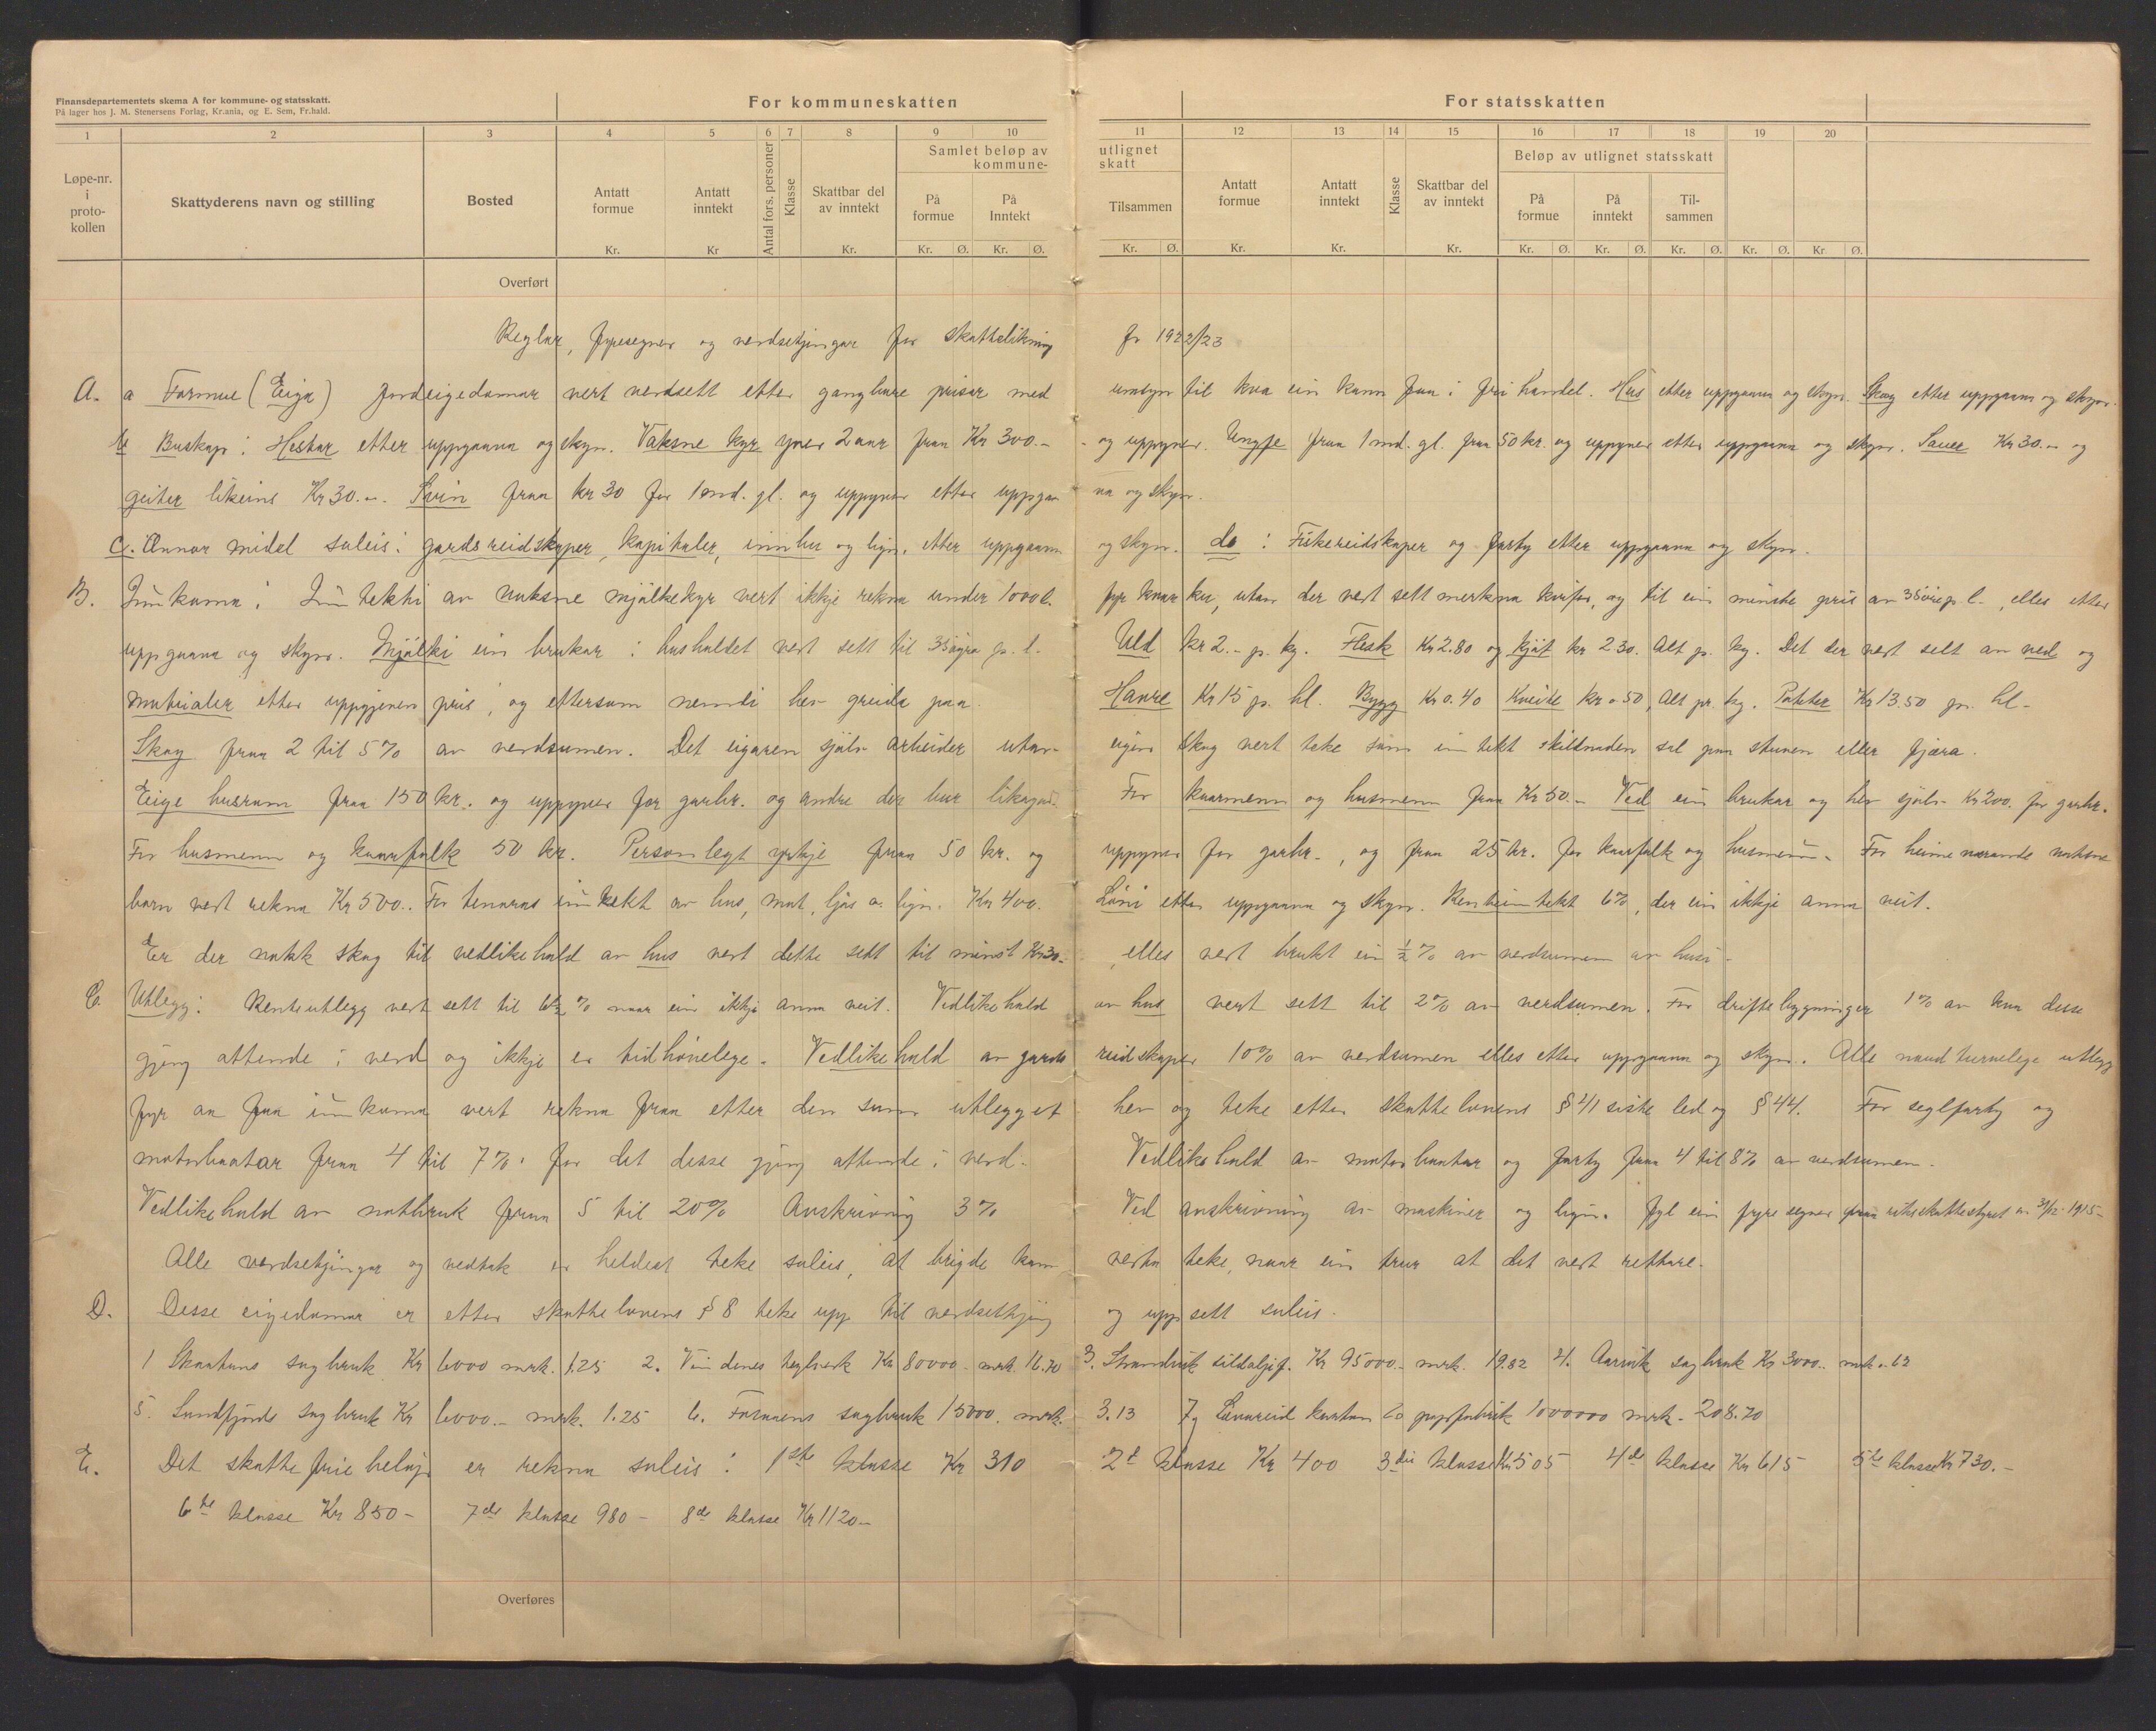 Finansdepartementets skema A for kommune- og statsskatt.
På lager hos J. M. Stenersens Forlag, Kr.ania, og E. Sem, Fr.hald.
For kommuneskatten
For statsskatten
1 2 3 4 5 6 7 8 9 10 11 12 13 14 15 16 17 18 19 20
Løpe-nr. i proto-kollen
Skattyderens navn og stilling
Bosted
Antatt formue
Antatt inntekt
Antal fors. personer
Klasse
Skattbar del av inntekt
Samlet beløp av kommune-
På formue
På Inntekt
utlignet skatt
Tilsammen
Antatt formue
Antatt inntekt
Klasse
Skattbar del av inntekt
Beløp av utlignet statsskatt
På formue
På inntekt
Til-sammen
Kr. Kr Kr. Kr. Ø. Kr. Ø. Kr. Ø. Kr. Kr. Kr. Kr. Ø. Kr. Ø. Kr. Ø. Kr. Ø. Kr Ø.
Overført
Reglar, fyresegner og verdsetjingar for skattelikning for 1922/23
A. a Formue (Eiga) Jordeigedomar vert verdsett etter gangbare prisar med umsyn til kva ein kann faa i fri handel. Hus etter uppgaava og skyn. Skog etter uppgaava og skyn.
b Buskap: Hestar etter uppgaava og skyn. Vaksne kyr yver 2 aar fraa Kr 300.- og uppyver. Ungfe fraa 1 md. gl. fraa 50 kr. og uppyver etter uppgaava og skyn. Sauer Kr 30.- og
geiter likeins Kr 30.-. Svin fraa kr 30 for 1 md. gl. og uppyver etter uppgaava og skyn.
c. Annor midel soleis: gardsreidskaper, kapitaler, innbu og lign. etter uppgaava og skyn. do: Fiskereidskaper og farty etter uppgaava og skyn.
B. Innkoma: Inntekti av vaksne mjølkekyr vert ikkje rekna under 1000 l. fyr kvar ku, utan der vert sett merkna kvifor, og til ein minste pris av 35 øre p. l., elles etter
uppgaava og skyn. Mjølki ein brukar i hushaldet vert sett til 35 øyra p. l. Uld kr 2.- p. kg. Flesk Kr 2.80 og kjøt kr 2.30. Alt p. kg. Det der vert selt av ved og
materialer etter uppgjeven pris, og ettersom nemndi hev greida paa. Havre Kr 15 p. hl. Bygg Kr 0.40 Kveite kr 0.50, Alt pr. kg. Poteter Kr 13.50 pr. hl.-
Skog fraa 2 til 5% av verdsumen. Det eigaren sjølv arbeider utav eigen skog vert teke som inntekt skilnaden sal paa stuven eller fjæra.
Eige husrum fraa 150 kr. og uppyver for garbr. og andre der bur For kaarmenn og husmenn fraa Kr 50.- Ved ein brukar og hev sjølv Kr 200. for garbr.
For husmenn og kaarfolk 50 kr. Personlegt yrkje fraa 50 kr. og uppyver for garbr., og fraa 25 kr. for kaarfolk og husmenn. For heimeverande vaksne
born vert rekna Kr 500.. For tenarar inntekt av hus, mat, ljos o. lign. Kr 400. Løni etter uppgaava og skyn. Renteinntekt 6%, der ein ikkje anna veit.
Er der nokk skog til vedlikehald av hus vert dette sett til minst Kr 30.- elles vert brukt ein ½% av verdsumen av husi.-
C. Utlegg: Renteutlegg vert sett til 6½% naar ein ikkje anna veit. Vedlikehald av hus vert sett til 2% av verdsumen. For driftsbygninger 1% av kva desse
gjeng attende i verd og ikkje er tidhøvelege. Vedlikehald av gards reidskaper 10% av verdsumen elles etter uppgaava og skyn. Alle naudturvelege utlegg
fyr aa faa innkoma vert rekna fraa etter den sum utlegget hev og teke etter skattelovens § 41 siste led og § 44. For seglfarty og
motorbaatar fraa 4 til 7% for det desse gjeng attende i verd. Vedlikehald av motorbaatar og farty fraa 4 til 8% av verdsumen.
Vedlikehald av notbruk fraa 5 til 20% Avskrivning 3% Ved avskrivning av maskiner og lign. fyl ein fyresegner fraa riksskattestyret av 31/12 1915-
Alle verdsetjingar og vedtak er heldest teke soleis, at brigde kann verta teke, naar ein trur at det vert rettare.
D. Desse eigedomar er etter skattelovens § 8 teke upp til verdsetting og uppsett soleis.
1 Skaatuns sagbruk Kr 6000 mrk. 1.25 2. Vindenes teglverk Kr 80000.- mrk. 16.70 3. Strandvik sildoljef. Kr 95000.- mrk. 19.82 4. Aarvik sagbruk Kr 3000.. mrk 0.62
5. Sundfjords sagbruk Kr 6000.- mrk. 1.25 6. sagbruk 15000. mrk. 3.13 7. karton & papfabrik 1000000 mrk. 208.70
E. Det skattefrie beløp er rekna soleis: 1ste klasse Kr 310 2d klasse Kr 400 3dii klasse Kr 505 4de klasse Kr 615 5te klasse Kr 730.-
6te klasse Kr 850- 7de klasse 980- 8de klasse Kr 1120.-
Overføres